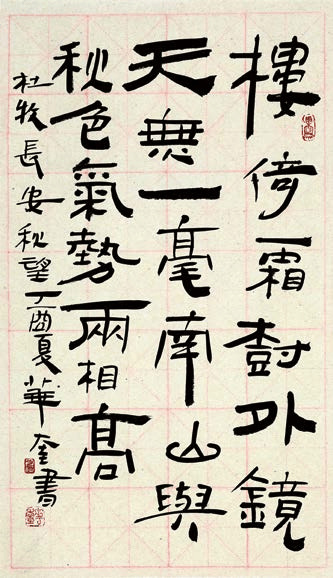 樓倚霜樹外鏡
天無一毫南山與
秋色氣勢兩相高
杜牧長安秋望丁酉夏華奎書